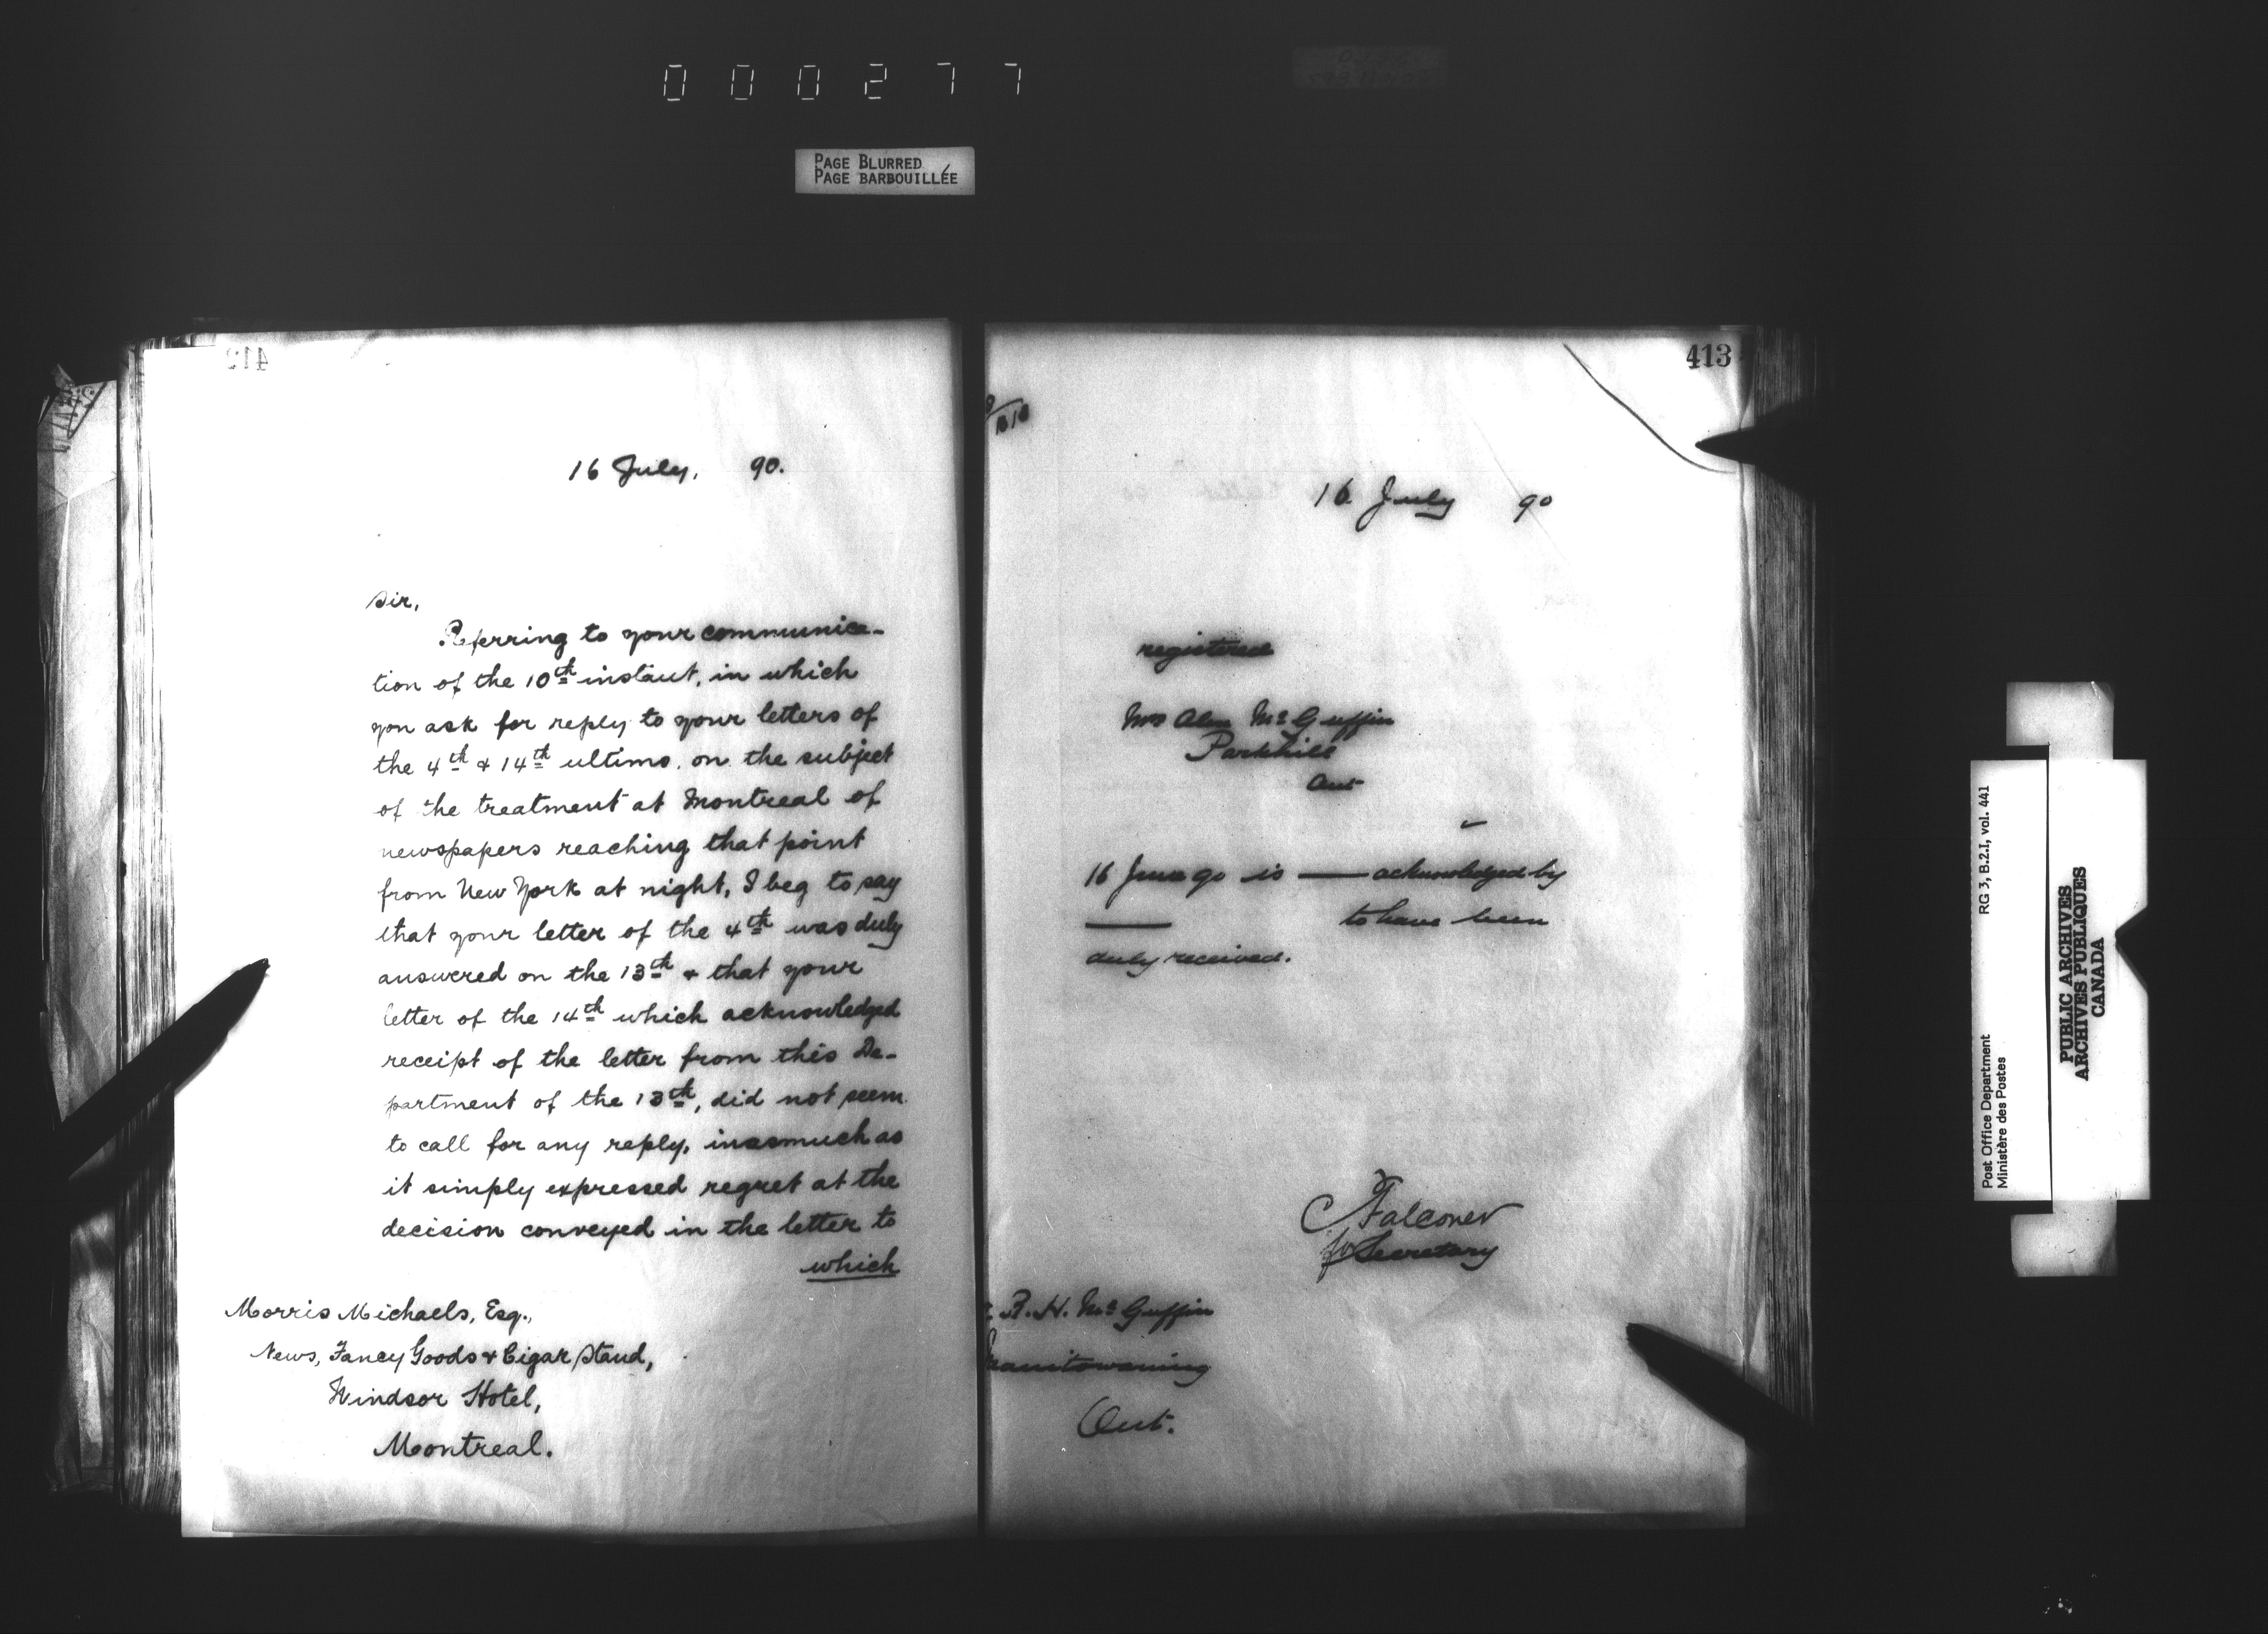 000277
PAGE BLURRED
PAGE BARBOUILLÉE
412
16 July, 90.
Sir,
Referring to your communica-
tion of the 10th instant, in which
you ask for reply to your letters of
the 4th & 14th ultimo, on the subject
of the treatment at Montreal of
newspapers reaching that point
from New York at night, I beg to say
that your letter of the 4th was duly
answered on the 13th & that your
letter of the 14th which acknowledged
receipt of the letter from this De-
partment of the 13th, did not seem
to call for any reply, inasmuch as
it simply expressed regret at the
decision conveyed in the letter to
which
Morris Michaels, Esq.,
News, Fancy Goods & Cigar Stand,
Windsor Hotel,
Montreal.
413
16 July 90
registered
Mrs Alex McGuffin
Parkhill
Ont
16 June 90 is — acknowledged by
— to have been
duly received.
C Falconer
for Secretary
R. H. McGuffin
Manitowaning
Ont.
RG 3, B.2.I, vol. 441
Post Office Department
Ministère des Postes
PUBLIC ARCHIVES
ARCHIVES PUBLIQUES
CANADA